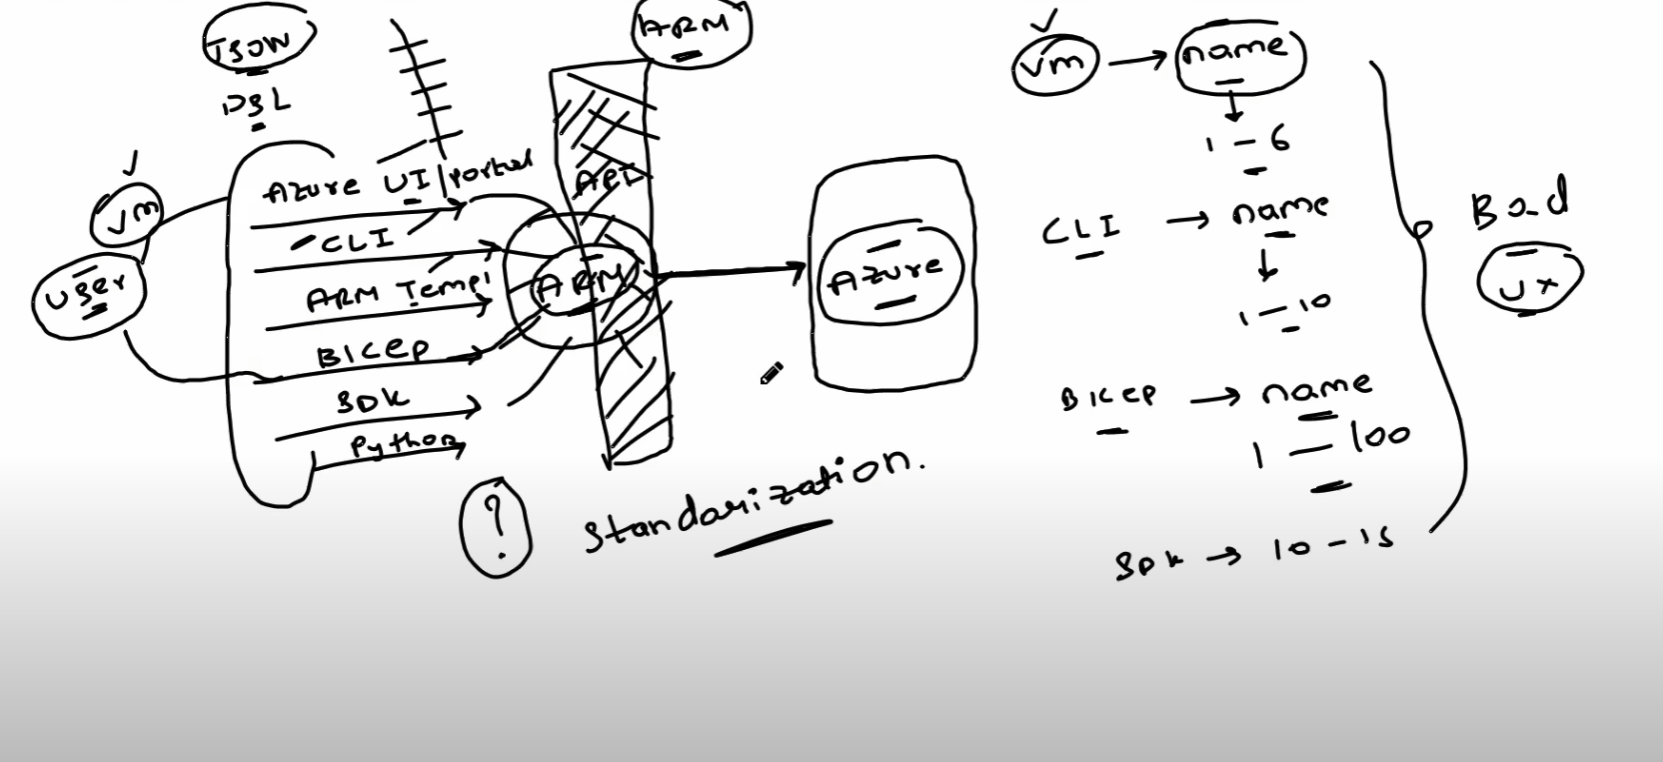 JSON
DSL
Azure UI/Portal
CLI
ARM Templ
BICEP
SDK
Python
VM
User
ARM
API
ARM
Azure
?
Standarization.
VM → name
1 - 6
CLI → name
1 - 10
BICEP → name
1 - 100
SDK → 10 - 15
Bad
UX